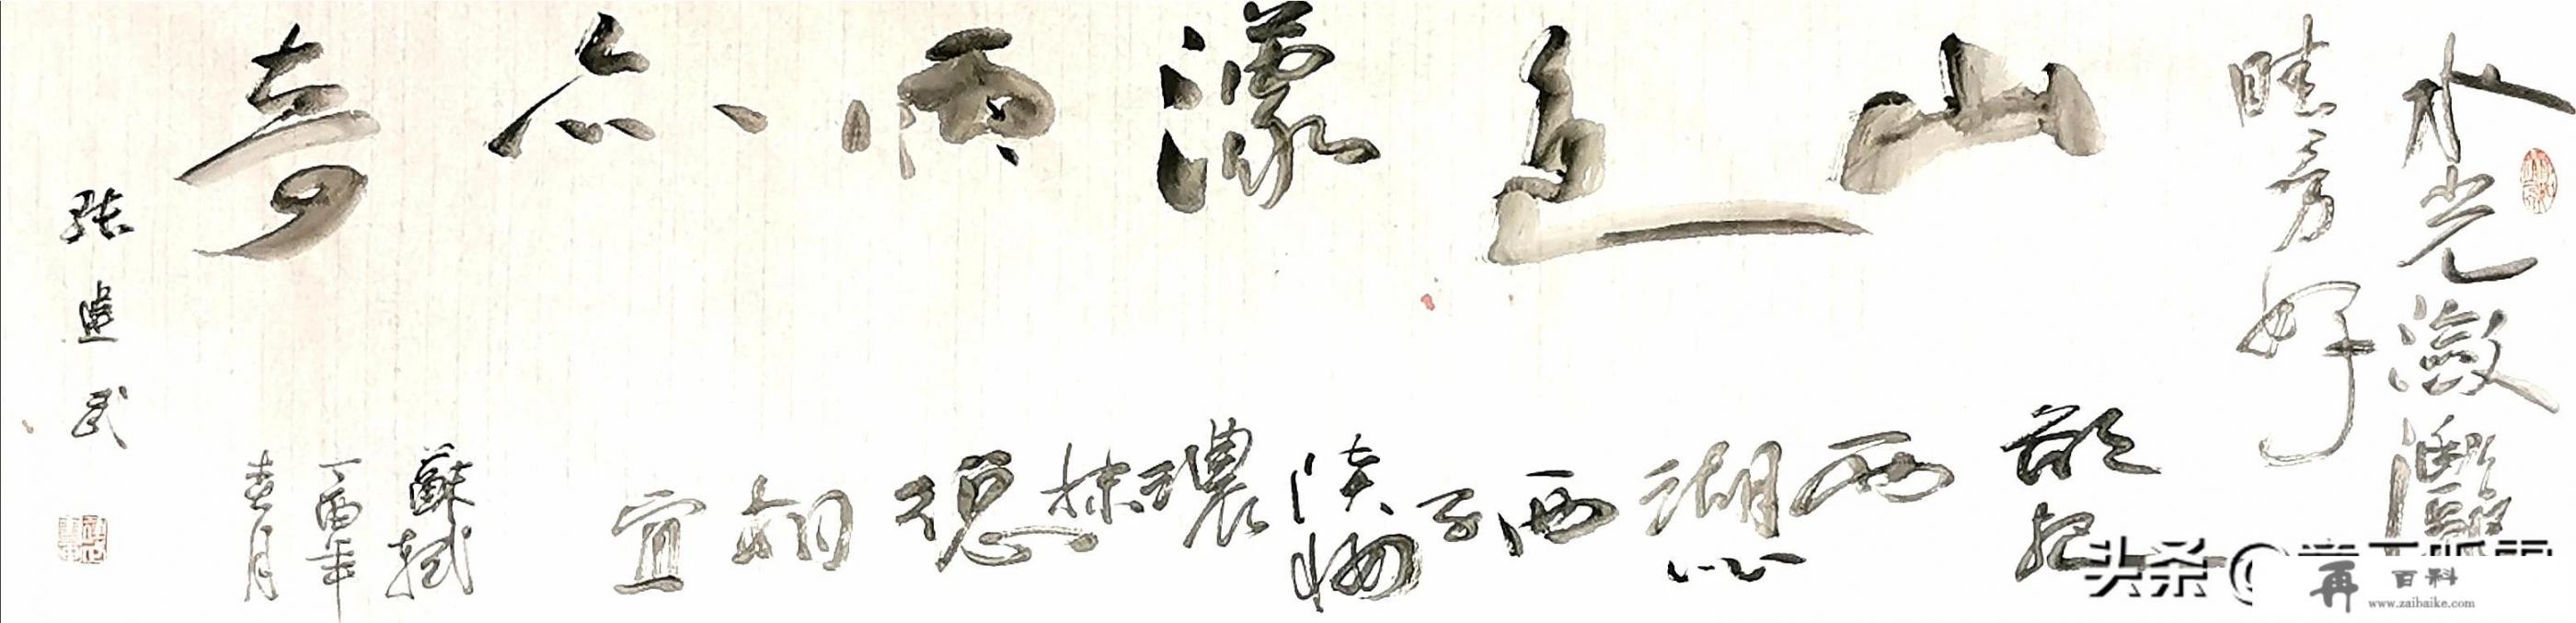 水光瀲灩
晴方好
山色濛雨亦奇
欲把
西湖比西子淡妝濃抹總相宜
蘇軾
丁酉年
春月
張
武
头条 @
再 百科
www.zaibaike.com